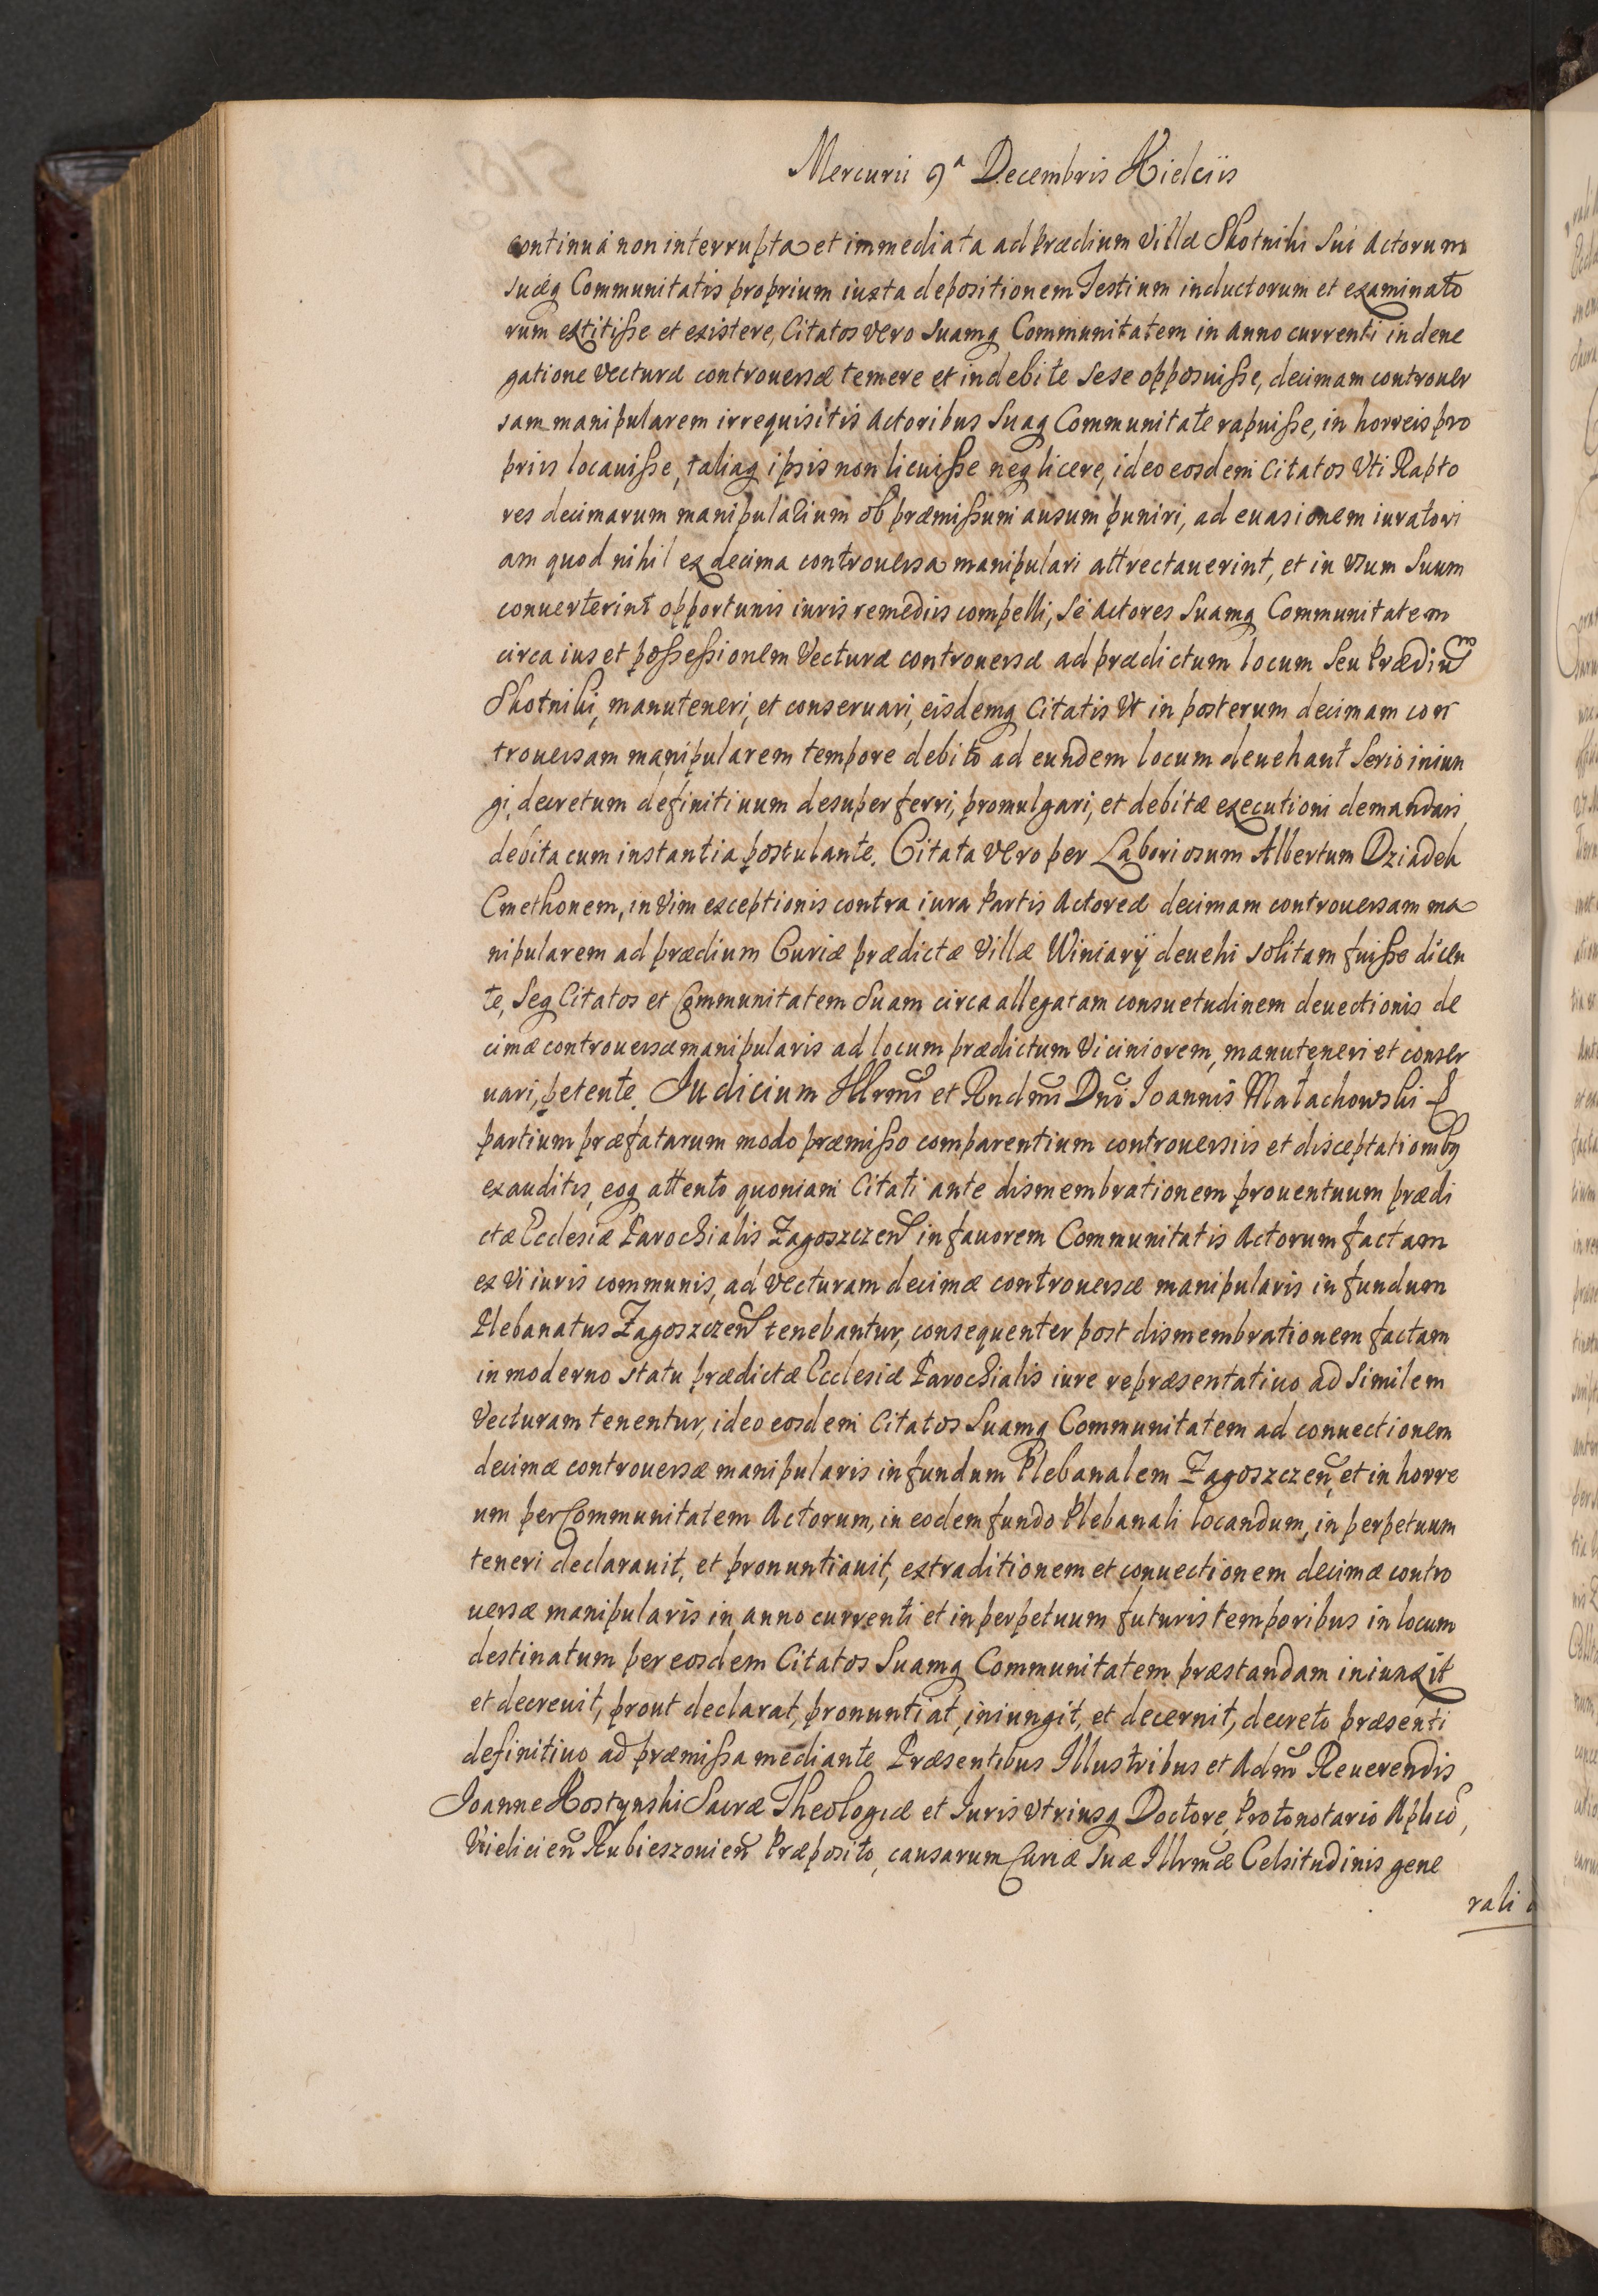 Mercurii 9ª Decembris Kielciis
continuá non interrupta et immediata ad Prædium Villæ Skotniki sui Actorum
suæq Communitatis proprium iuxta depositionem Testium inductorum et examinato
rum extitisse et existere, Citatos vero suamq Communitatem in anno currenti in dene
gatione Vecturæ controuersæ temere et indebite sese opposuisse, decimam controuer
sam manipularem irrequisitis Actoribus suaq Communitate rapuisse, in horreis pro
priis locauisse, taliaq ipsis non licuisse neq licere, ideo eosdem Citatos Vti Rapto
res decimarum manipularium ob præmissum ausum puniri, ad euasionem iuratori
am quod nihil ex decima controuersa manipulari attrectauerint, et in vsum suum
conuerterint opportunis iuris remediis compelli, se Actores suamq Communitatem
circa ius et possessionem Vecturæ controuersæ ad prædictum locum seu Prædium
Skotniki, manuteneri, et conseruari, eisdemq Citatis Vt in posterum decimam con
trouersam manipularem tempore debito ad eundem locum deuehant serio iniun
gi, decretum definitiuum desuper ferri, promulgari, et debitæ executioni demandari
debita cum instantia postulante. Citata vero per Laboriosum Albertum Dziadek
Cmethonem, in vim exceptionis contra iura Partis Actoreæ decimam controuersam ma
nipularem ad prædium Curiæ prædictæ Villæ Winiary deuehi solitam fuisse dicen
te, seq Citatos et Communitatem suam circa allegatam consuetudinem deuectionis de
cimæ controuersæ manipularis ad locum prædictum Viciniorem, manuteneri et conser
uari, petente. Judicium Illrmi et Rndmi Dni Ioannis Małachowski
partium præfatarum modo præmisso comparentium controuersiis et disceptationibq
exauditis, eoq attento quoniam Citati ante dismembrationem prouentuum prædi
ctæ Ecclesiæ Parochialis Zagoszczen in fauorem Communitatis Actorum factam
ex vi iuris communis, ad vecturam decimæ controuersæ manipularis in fundum
Plebanatus Zagoszczen tenebantur, consequenter post dismembrationem factam
in moderno statu prædictæ Ecclesiæ Parochialis iure repræsentatiuo ad similem
Vecturam tenentur, ideo eosdem Citatos suamq Communitatem ad conuectionem
decimæ controuersæ manipularis in fundum Plebanalem Zagoszczen, et in horre
um per Communitatem Actorum, in eodem fundo Plebanali locandum, in perpetuum
teneri declarauit, et pronuntiauit, extraditionem et conuectionem decimæ contro
uersæ manipularis in anno currenti et in perpetuum futuris temporibus in locum
destinatum per eosdem Citatos suamq Communitatem præstandam iniunxit
et decreuit, prout declarat, pronuntiat, iniungit, et decernit, decreto præsenti
definitiuo ad præmissa mediante Præsentibus Illustribus et Adm Reuerendis
Joanne Kostynski Sacræ Theologiæ et Iuris Vtriusq Doctore, Protonotario Aplico,
Vielicien Rubieszouien Præposito, causarum Curiæ suæ Illrmæ Celsitudinis gene
rali